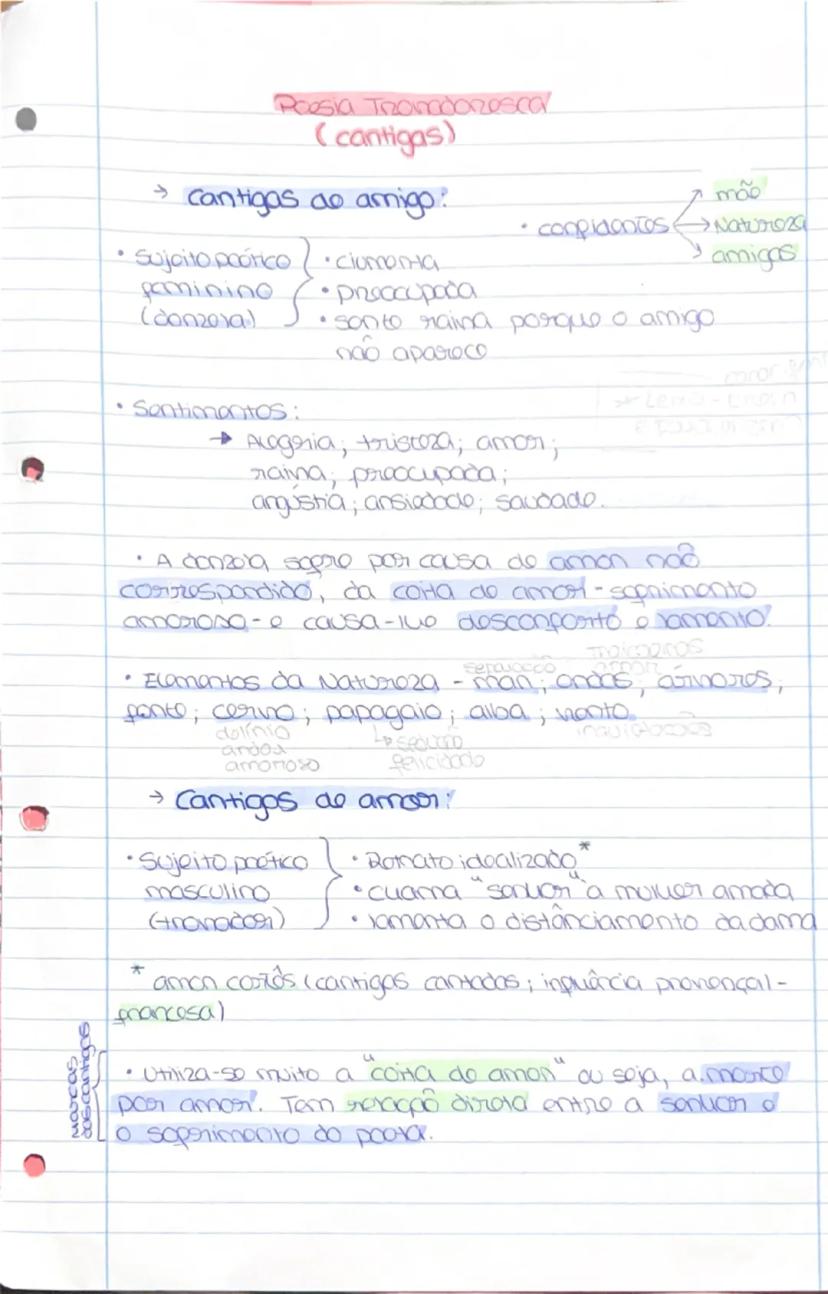 Poesia Trovadoresca
(cantigas)
→ Cantigas de amigo:
• confidentes → mãe
→ Natureza
→ amigas
• Sujeito poético
feminino
(donzela)
• ciumenta
• preocupada
• sente raiva porque o amigo
não aparece
• Sentimentos:
→ Alegria; tristeza; amor;
raiva; preocupada;
angústia; ansiedade; saudade.
• A donzela sofre por causa de amor não
correspondido, da coita de amor - sofrimento
amoroso - e causa-lhe desconforto e lamento.
separação
amor
• Elementos da Natureza - mar; ondas; árvores;
fonte; cervo; papagaio; alba; vento.
amoroso
↳ sedução
felicidade
→ Cantigas de amor:
• Sujeito poético
masculino
(trovador)
• Retrato idealizado*
• chama "senhor" à mulher amada
• lamenta o distânciamento da dama
* amor cortês (cantigas cantadas; influência provençal-
francesa)
marcas
das cantigas
• Utiliza-se muito a "coita de amor" ou seja, a morte
por amor. Tem relação direta entre a senhor e
o sofrimento do poeta.